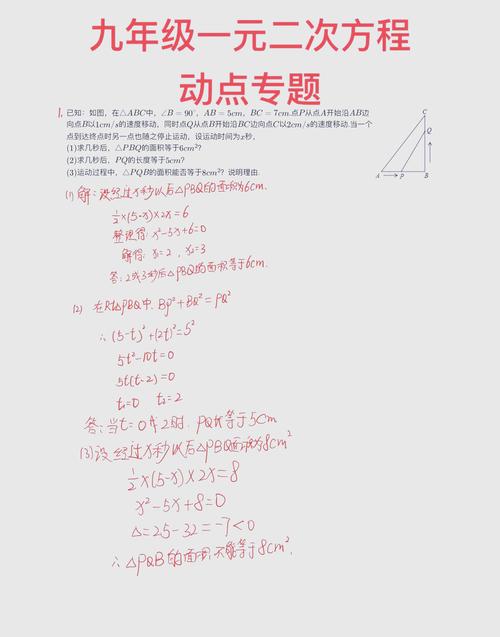 九年级一元二次方程
动点专题
1. 已知：如图，在△ABC中，∠B = 90°，AB = 5cm，BC = 7cm.点P从点A开始沿AB边
向点B以1cm/s的速度移动，同时点Q从点B开始沿BC边向点C以2cm/s的速度移动.当一个
点到达终点时另一点也随之停止运动，设运动时间为x秒，
(1)求几秒后，△PBQ的面积等于6cm²?
(2)求几秒后，PQ的长度等于5cm?
(3)运动过程中，△PQB的面积能否等于8cm²? 说明理由.
C
Q
A
P
B
(1) 解：设经过x秒以后△PBQ的面积为6cm.
½×(5-x)×2x=6
整理得：x²-5x+6=0
解得：x₁=2，x₂=3
答：2或3秒后△PBQ的面积等于6cm.
(2) 在Rt△PBQ中，BP²+BQ²=PQ²
∴(5-t)²+(2t)²=5²
5t²-10t=0
5t(t-2)=0
t₁=0 t₂=2
答：当t=0或2时，PQ长等于5cm
(3)设经过x秒以后△PBQ面积为8cm²
½×(5-x)×2x=8
x²-5x+8=0
△=25-32=-7<0
∴△PQB的面积不能等于8cm².